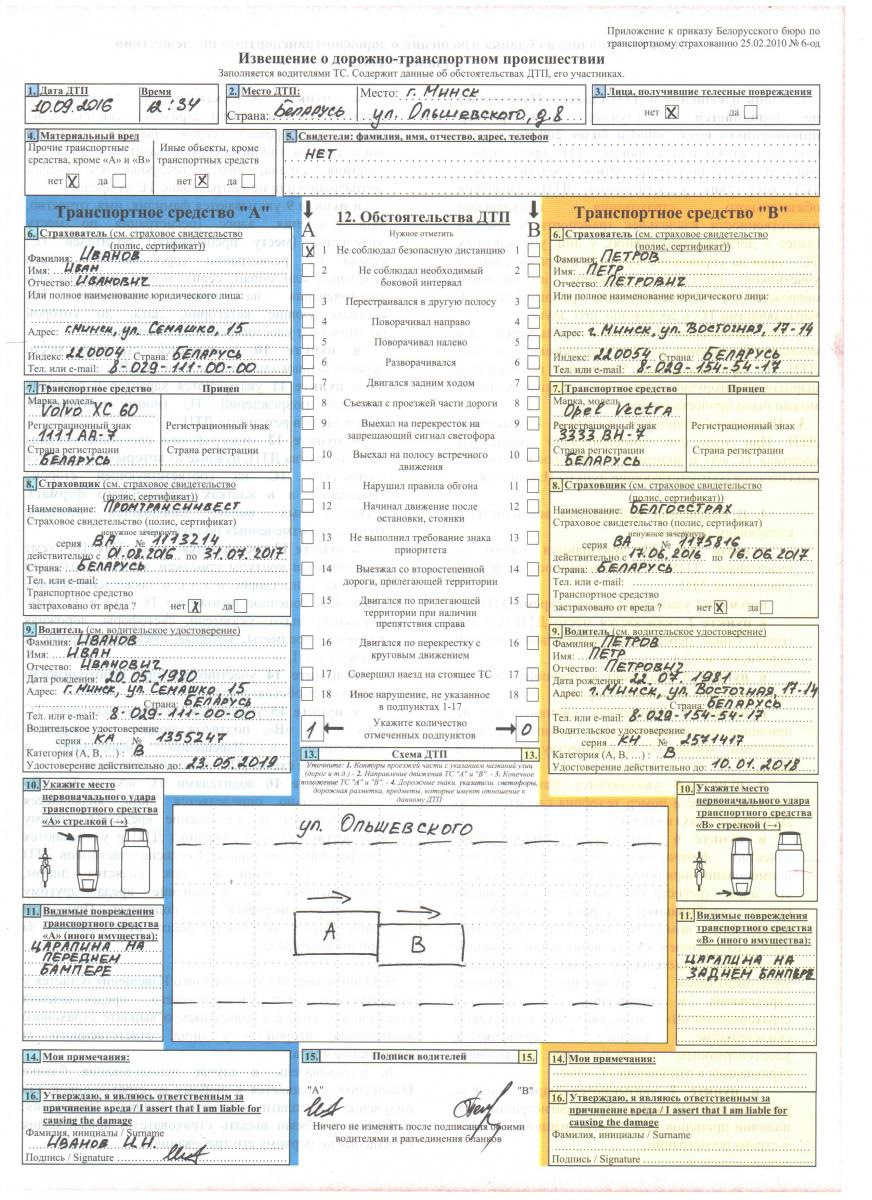 Приложение к приказу Белорусского бюро по
транспортному страхованию 25.02.2010 № 6-од
Извещение о дорожно-транспортном происшествии
Заполняется водителями ТС. Содержит данные об обстоятельствах ДТП, его участниках.
1. Дата ДТП Время
10.09.2016 12:34
2. Место ДТП: Место: г. Минск
Страна: Беларусь ул. Ольшевского, д.8
3. Лица, получившие телесные повреждения
нет X да
4. Материальный вред
Прочие транспортные средства, кроме «А» и «В»
нет X да
Иные объекты, кроме транспортных средств
нет X да
5. Свидетели: фамилия, имя, отчество, адрес, телефон
НЕТ
Транспортное средство "А"
6. Страхователь (см. страховое свидетельство
(полис, сертификат))
Фамилия: Иванов
Имя: Иван
Отчество: Иванович
Или полное наименование юридического лица:
Адрес: г. Минск, ул. Семашко, 15
Индекс: 220004 Страна: Беларусь
Тел. или e-mail: 8-029-111-00-00
7. Транспортное средство Прицеп
Марка, модель
Volvo XC 60
Регистрационный знак Регистрационный знак
1111 АА-7
Страна регистрации Страна регистрации
Беларусь
8. Страховщик (см. страховое свидетельство
(полис, сертификат))
Наименование: Промтрансинвест
Страховое свидетельство (полис, сертификат)
ненужное зачеркнуть
серия ВА № 1113214
действительно с 01.08.2016 по 31.07.2017
Страна: Беларусь
Тел. или e-mail:
Транспортное средство
застраховано от вреда ? нет X да
9. Водитель (см. водительское удостоверение)
Фамилия: Иванов
Имя: Иван
Отчество: Иванович
Дата рождения: 20.05.1980
Адрес: г. Минск, ул. Семашко 15
Страна: Беларусь
Тел. или e-mail: 8-029-111-00-00
Водительское удостоверение
серия КА № 1355247
Категория (А, В, ...) : В
Удостоверение действительно до: 23.05.2019
10. Укажите место
первоначального удара
транспортного средства
«А» стрелкой (→)
11. Видимые повреждения
транспортного средства
«А» (иного имущества):
Царапина на
переднем
бампере
14. Мои примечания:
16. Утверждаю, я являюсь ответственным за
причинение вреда / I assert that I am liable for
causing the damage
Фамилия, инициалы / Surname
Иванов И.И.
Подпись / Signature
А В
12. Обстоятельства ДТП
Нужное отметить
X 1 Не соблюдал безопасную дистанцию 1
2 Не соблюдал необходимый 2
боковой интервал
3 Перестраивался в другую полосу 3
4 Поворачивал направо 4
5 Поворачивал налево 5
6 Разворачивался 6
7 Двигался задним ходом 7
8 Съезжал с проезжей части дороги 8
9 Выехал на перекресток на 9
запрещающий сигнал светофора
10 Выехал на полосу встречного 10
движения
11 Нарушил правила обгона 11
12 Начинал движение после 12
остановки, стоянки
13 Не выполнил требование знака 13
приоритета
14 Выезжал со второстепенной 14
дороги, прилегающей территории
15 Двигался по прилегающей 15
территории при наличии
препятствия справа
16 Двигался по перекрестку с 16
круговым движением
17 Совершил наезд на стоящее ТС 17
18 Иное нарушение, не указанное 18
в подпунктах 1-17
1 Укажите количество 0
отмеченных подпунктов
13. Схема ДТП 13.
Уточните: 1. Контуры проезжей части с указанием названий улиц
(дорог и т.д.) - 2. Направление движения ТС "А" и "В". - 3. Конечное
положение ТС "А" и "В" - 4. Дорожные знаки, указатели, светофоры,
дорожная разметка, предметы, которые имеют отношение к
данному ДТП
ул. Ольшевского
А
В
15. Подписи водителей 15.
"А" "В"
Ничего не изменять после подписания обоими
водителями и разъединения бланков
Транспортное средство "В"
6. Страхователь (см. страховое свидетельство
(полис, сертификат))
Фамилия: Петров
Имя: Петр
Отчество: Петрович
Или полное наименование юридического лица:
Адрес: г. Минск, ул. Восточная, 17-14
Индекс: 220054 Страна: Беларусь
Тел. или e-mail: 8-029-154-54-17
7. Транспортное средство Прицеп
Марка, модель
Opel Vectra
Регистрационный знак Регистрационный знак
3333 ВН-7
Страна регистрации Страна регистрации
Беларусь
8. Страховщик (см. страховое свидетельство
(полис, сертификат))
Наименование: Белгосстрах
Страховое свидетельство (полис, сертификат)
ненужное зачеркнуть
серия ВА № 1175816
действительно с 17.06.2016 по 16.06.2017
Страна: Беларусь
Тел. или e-mail:
Транспортное средство
застраховано от вреда ? нет X да
9. Водитель (см. водительское удостоверение)
Фамилия: Петров
Имя: Петр
Отчество: Петрович
Дата рождения: 22.07.1981
Адрес: г. Минск, ул. Восточная, 17-14
Страна: Беларусь
Тел. или e-mail: 8-029-154-54-17
Водительское удостоверение
серия КН № 2571417
Категория (А, В, ...) : В
Удостоверение действительно до: 10.01.2018
10. Укажите место
первоначального удара
транспортного средства
«В» стрелкой (→)
11. Видимые повреждения
транспортного средства
«В» (иного имущества):
Царапина на
заднем бампере
14. Мои примечания:
16. Утверждаю, я являюсь ответственным за
причинение вреда / I assert that I am liable for
causing the damage
Фамилия, инициалы / Surname
Подпись / Signature